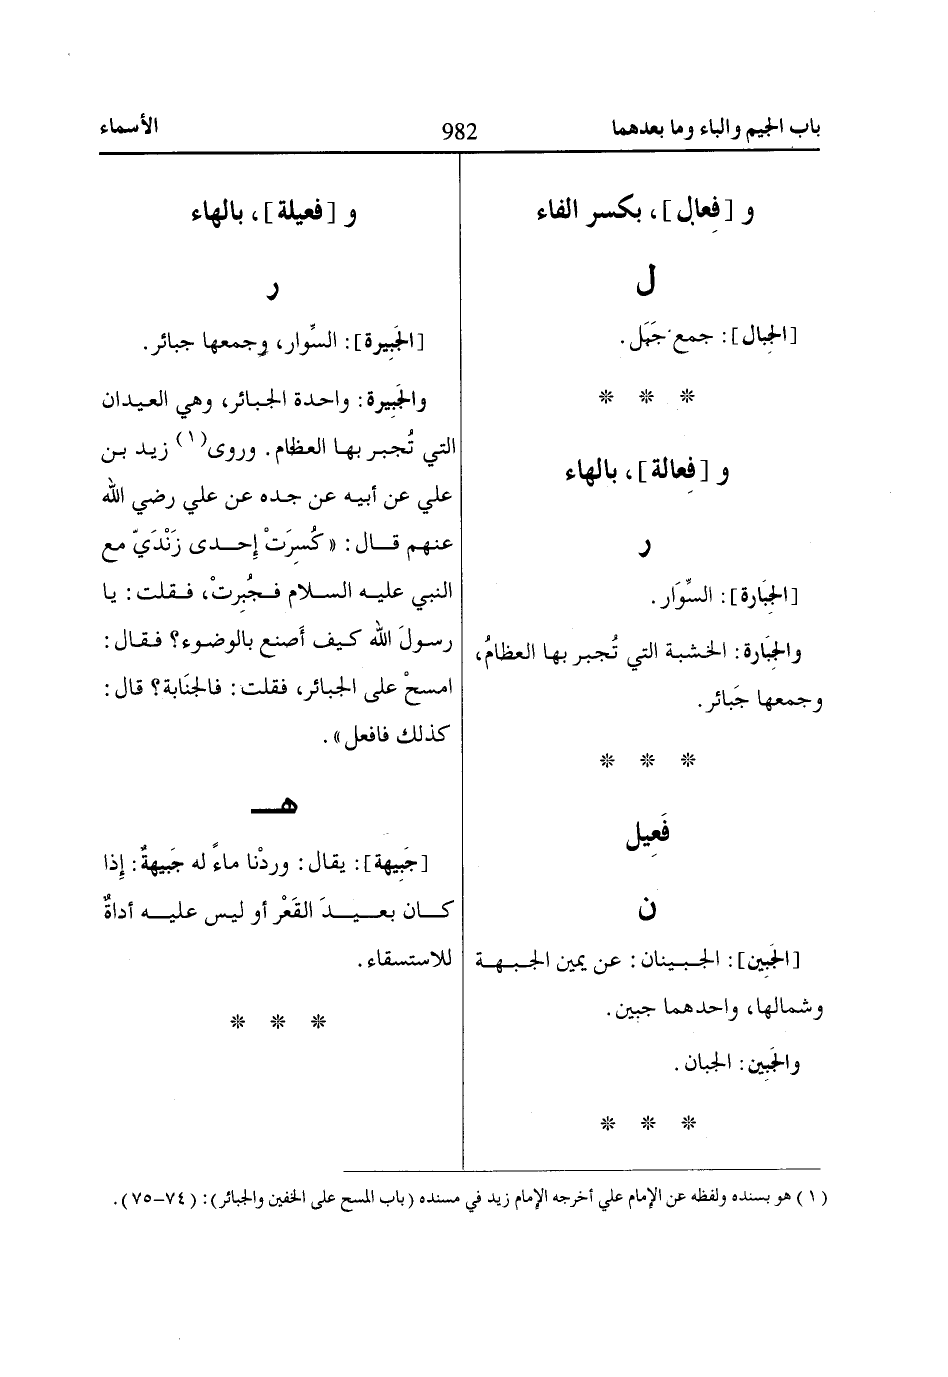 باب الجيم والباء وما بعدهما
982
الأسماء
و [فِعال]، بكسر الفاء
ل
[الجِبال]: جمع جَبَل.
* * *
و [فِعالة]، بالهاء
ر
[الجِبَارة]: السِّوَار.
والجِبَارة: الخشبة التي تُجبر بها العظامُ،
وجمعها جَبائر.
* * *
فَعِيل
ن
[الجَبِين]: الجبينان: عن يمين الجبهة
وشمالها، واحدهما جبين.
والجَبِين: الجبان.
* * *
و [فعيلة]، بالهاء
ر
[الجَبِيرة]: السِّوار، وجمعها جبائر.
والجَبِيرة: واحدة الجبائر، وهي العيدان
التي تُجبر بها العظام. وروى(١) زيد بن
علي عن أبيه عن جده عن علي رضي الله
عنهم قال: «كُسِرَتْ إحدى زَنْدَيّ مع
النبي عليه السلام فجُبِرتْ، فقلت: يا
رسولَ الله كيف أصنع بالوضوء؟ فقال:
امسحْ على الجبائر، فقلت: فالجنَابة؟ قال:
كذلك فافعل».
هـ
[جَبِيهة]: يقال: وردْنا ماءً له جَبِيهةٌ: إذا
كان بعيدَ القَعْر أو ليس عليه أداةٌ
للاستسقاء.
* * *
(١) هو بسنده ولفظه عن الإمام علي أخرجه الإمام زيد في مسنده (باب المسح على الخفين والجبائر): (٧٤-٧٥).